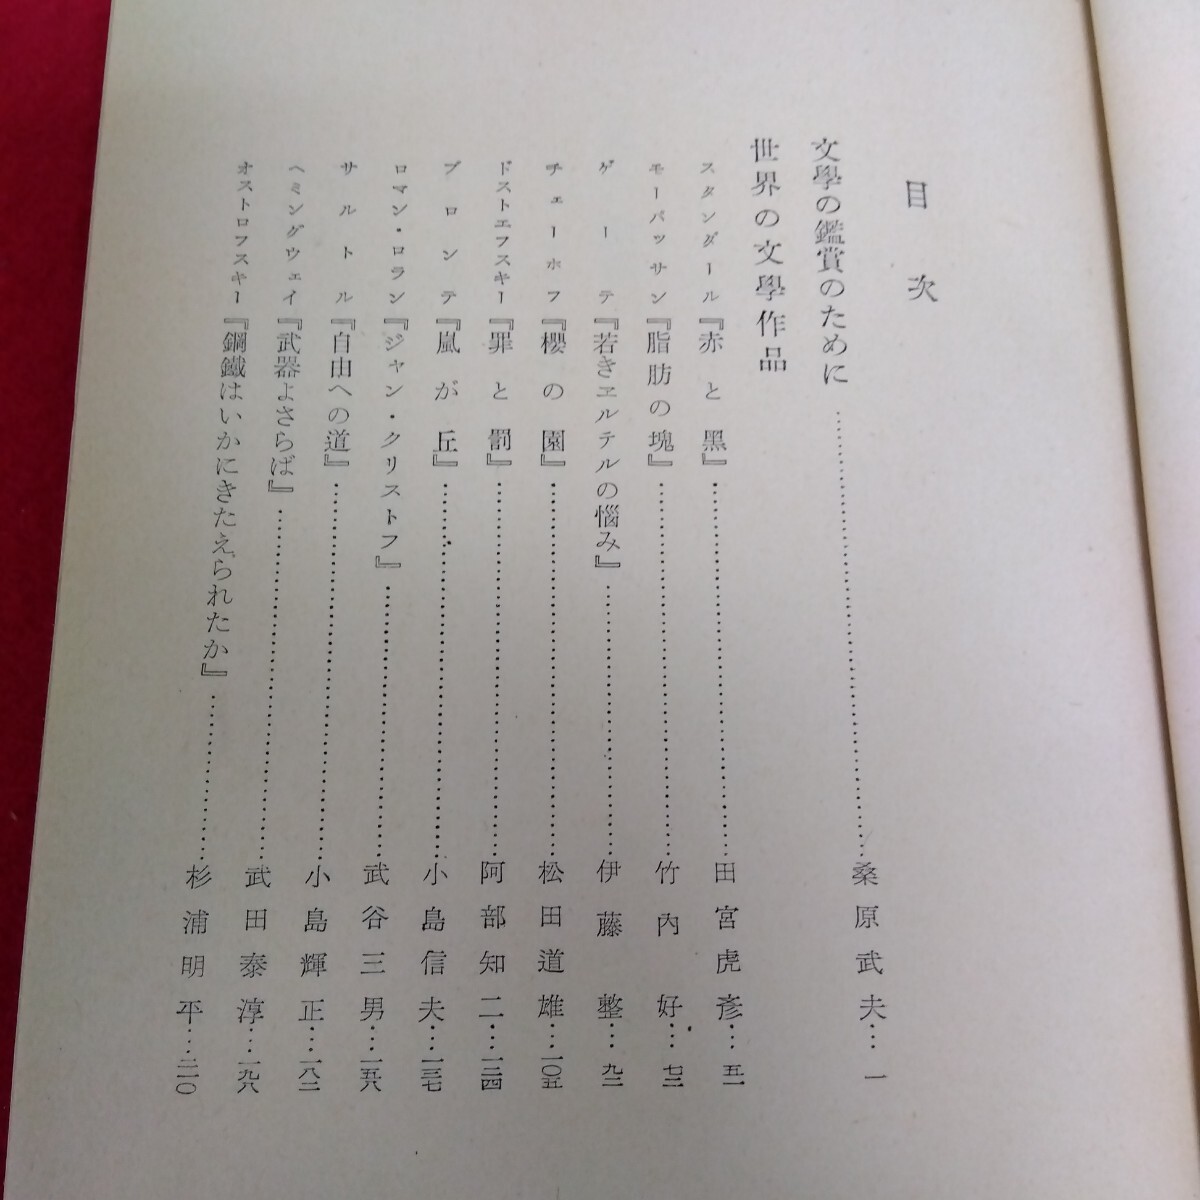 目次
文學の鑑賞のために……桑原武夫…一
世界の文學作品
スタンダール『赤と黑』……田宮虎彥…五一
モーパッサン『脂肪の塊』……竹內好…七二
ゲーテ『若きヱルテルの惱み』……伊藤整…九二
チェーホフ『櫻の園』……松田道雄…一〇五
ドストエフスキー『罪と罰』……阿部知二…一二四
ブロンテ『嵐が丘』……小島信夫…一三七
ロマン・ロラン『ジャン・クリストフ』……武谷三男…一五八
サルトル『自由への道』……小島輝正…一八二
ヘミングウェイ『武器よさらば』……武田泰淳…一九八
オストロフスキー『鋼鐵はいかにきたえられたか』……杉浦明平…二一〇